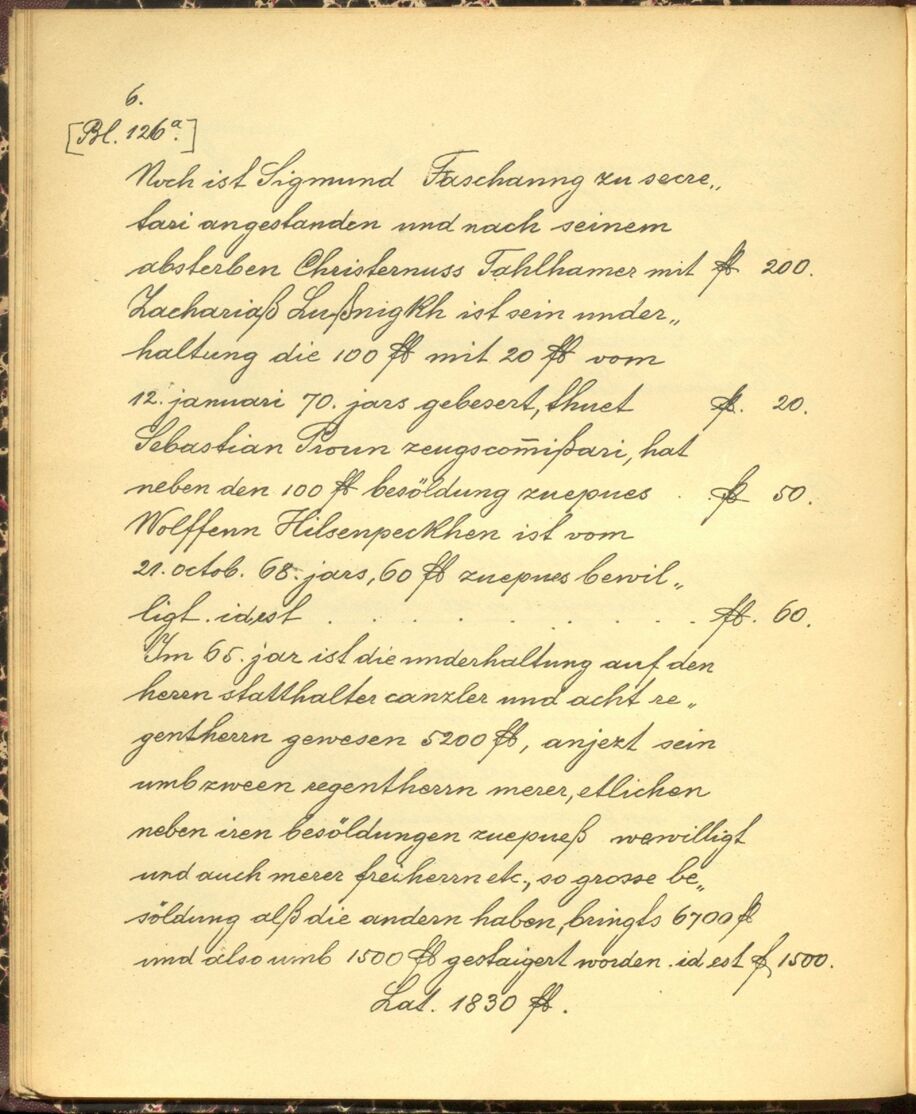 6.
[Bl. 126a.]
Noch ist Sigmund Faschanng zu secre„
tari angestanden und nach seinem
absterben Christernuss Tahlhamer mit fl 200.
Zachariaß Lußnigkh ist sein under„
haltung die 100 fl mit 20 fl vom
12. januari 70. jars gebesert, thuet fl. 20.
Sebastian Proun zeugscom̅ißari, hat
neben den 100 fl besöldung zuepues . fl 50.
Wolffenn Hilsenpeckhen ist vom
21. octob. 68. jars, 60 fl zuepues bewil„
ligt . id est . . . . . . . . . . fl. 60.
Im 65. jar ist die underhaltung auf den
herrn statthalter canzler und acht re„
gentherrn gewesen 5200 fl, anjezt sein
umb zween regentherrn merer, etlichen
neben iren besöldungen zuepueß wewilligt
und auch merer freiherrn etc., so grosse be„
söldung alß die andern haben, bringts 6700 fl
und also umb 1500 fl gestaigert worden . id est fl 1500.
Lat. 1830 fl.